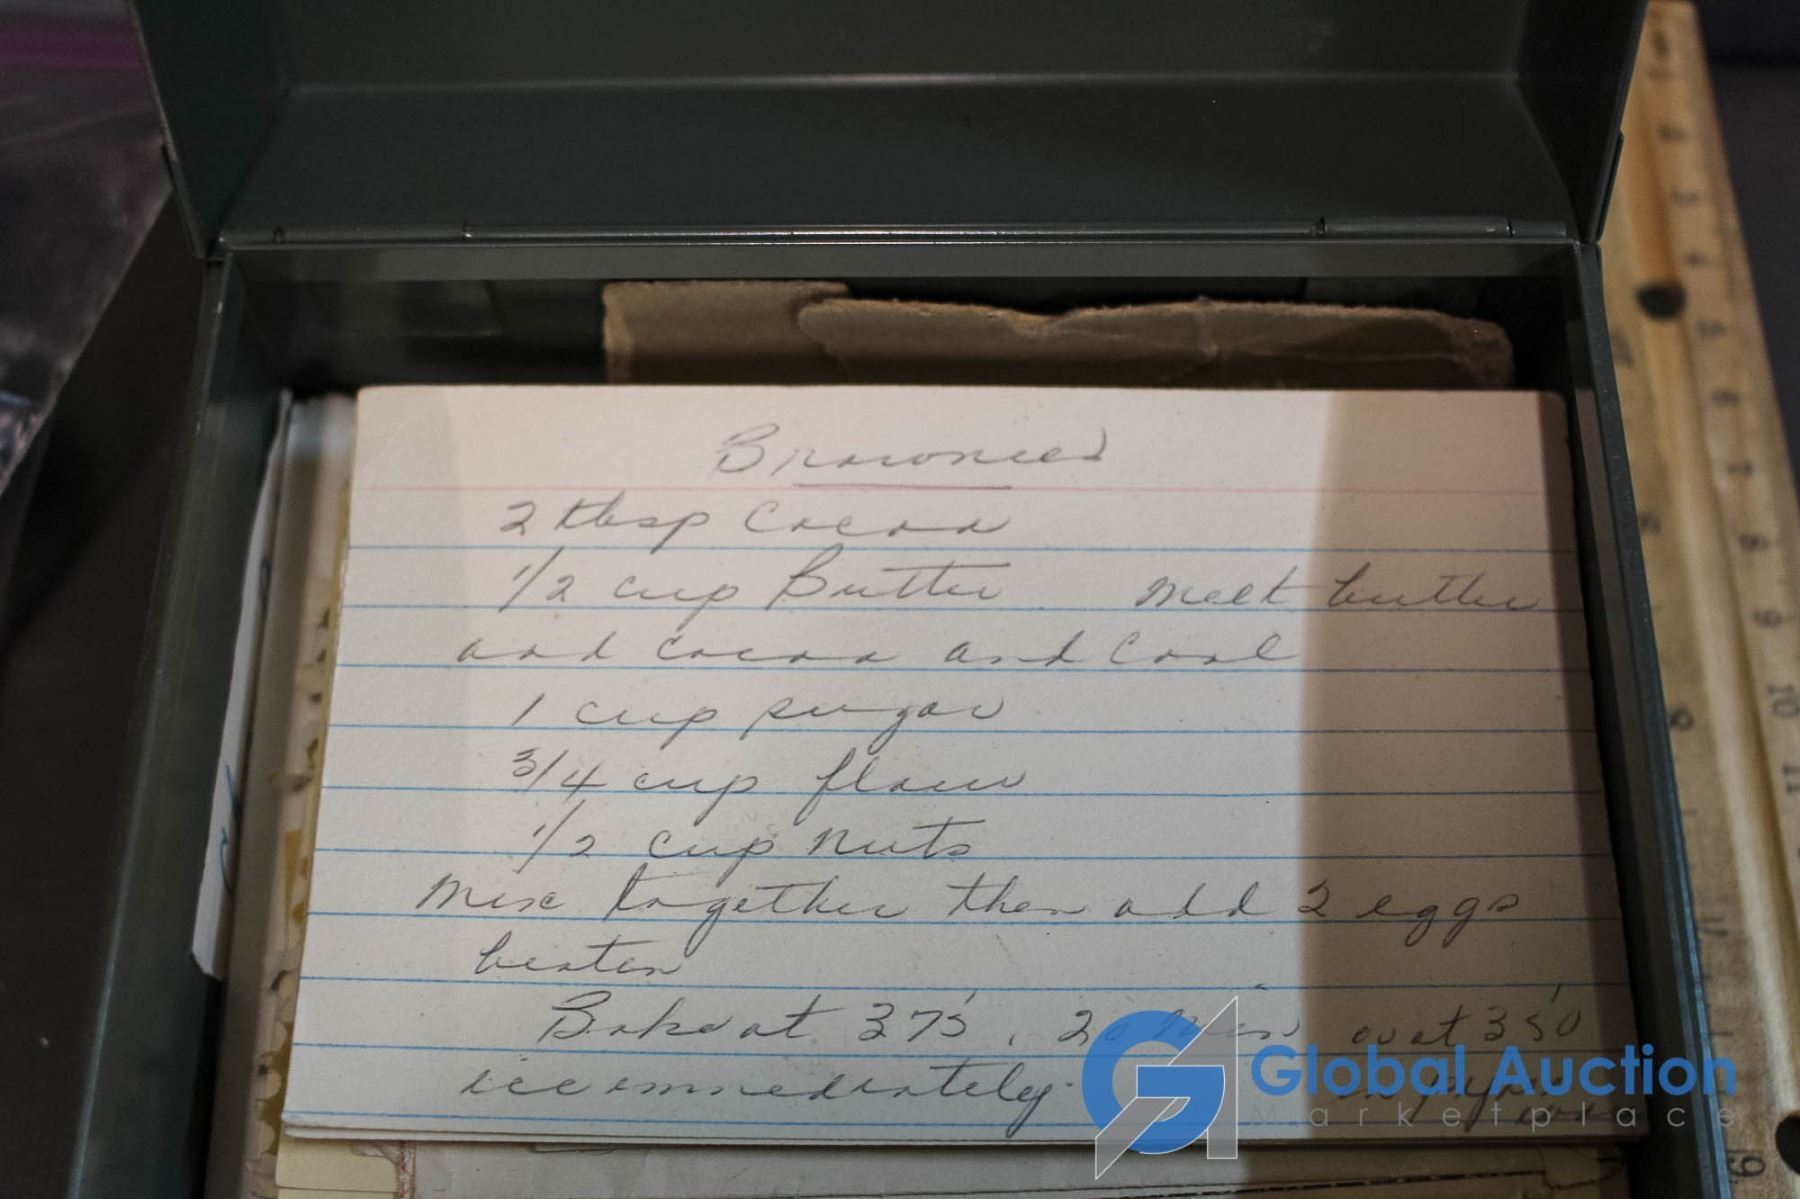 Brownies
2 tbsp Cocoa
1/2 cup Butter melt butter
and cocoa and cool
1 cup sugar
3/4 cup flour
1/2 cup nuts
Mix together then add 2 eggs
beaten
Bake at 375, 20 min or at 350
ice immediately. in pyrex
Global Auction
Marketplace
8
9
10
11